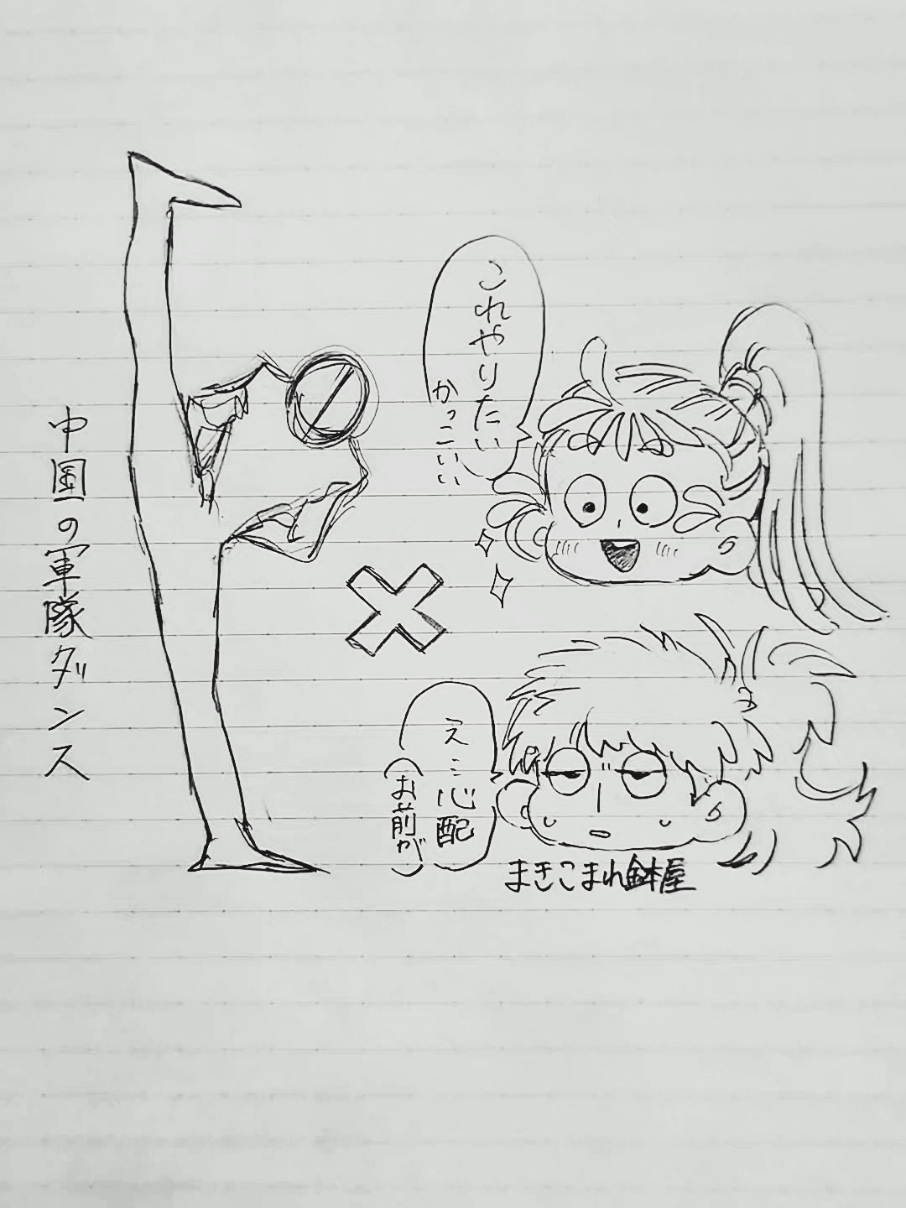 中国の軍隊ダンス
これやりたい
かっこいい
え…心配
(お前が)
まきこまれ鉢屋